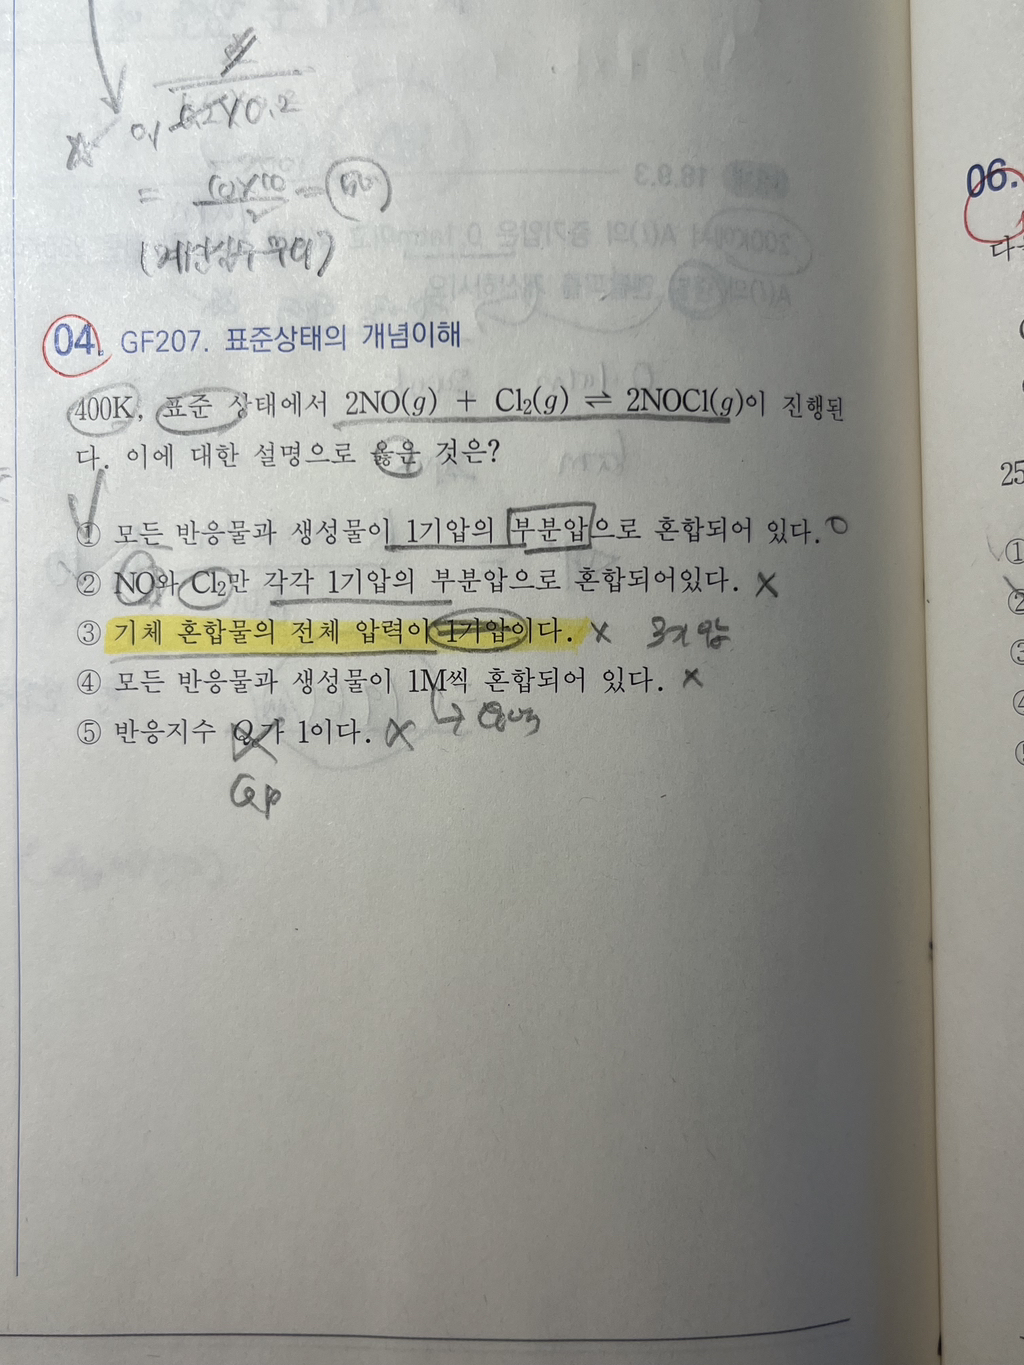 0.2
=
04. GF207. 표준상태의 개념이해
400K, 표준 상태에서 2NO(g) + Cl₂(g) ⇌ 2NOCl(g)이 진행된
다. 이에 대한 설명으로 옳은 것은?
① 모든 반응물과 생성물이 1기압의 부분압으로 혼합되어 있다. O
② NO와 Cl₂만 각각 1기압의 부분압으로 혼합되어있다. X
③ 기체 혼합물의 전체 압력이 1기압이다. X 3기압
④ 모든 반응물과 생성물이 1M씩 혼합되어 있다. X
⑤ 반응지수 Q가 1이다. X
Qp
06.
25
①
②
③
④
⑤